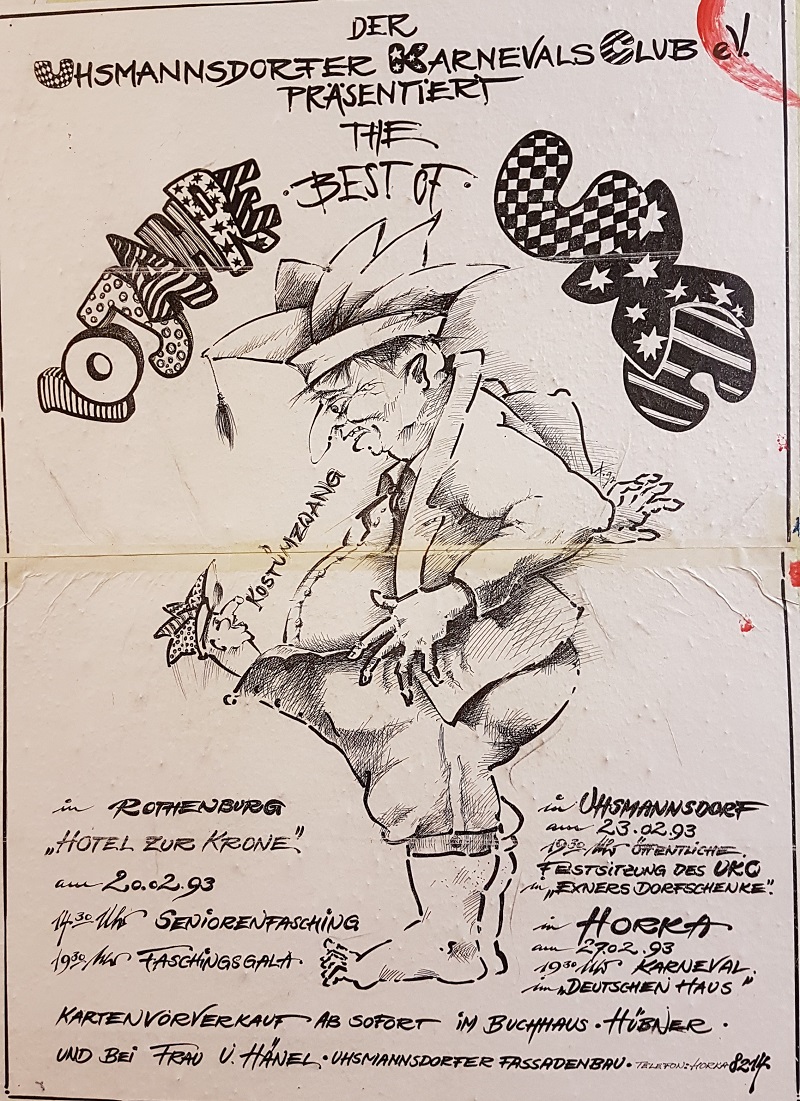 DER
UHSMANNSDORFER KARNEVALS CLUB eV.
PRÄSENTIERT
THE
BEST OF
10 JAHRE
UKC
KOSTÜMZWANG
in ROTHENBURG
„HOTEL ZUR KRONE"
am 20.02.93
14.30 Uhr SENIORENFASCHING
19.30 Uhr FASCHINGSGALA
in UHSMANNSDORF
am 23.02.93
19.30 Uhr ÖFFENTLICHE
FESTSITZUNG DES UKC
in „EXNERS DORFSCHENKE".
in HORKA
am 27.02.93
19.30 Uhr KARNEVAL
im „DEUTSCHEN HAUS"
KARTENVORVERKAUF AB SOFORT IM BUCHHAUS · HÜBNER ·
UND BEI FRAU U. HÄNEL · UHSMANNSDORFER FASSADENBAU · TELEFON: HORKA 8214